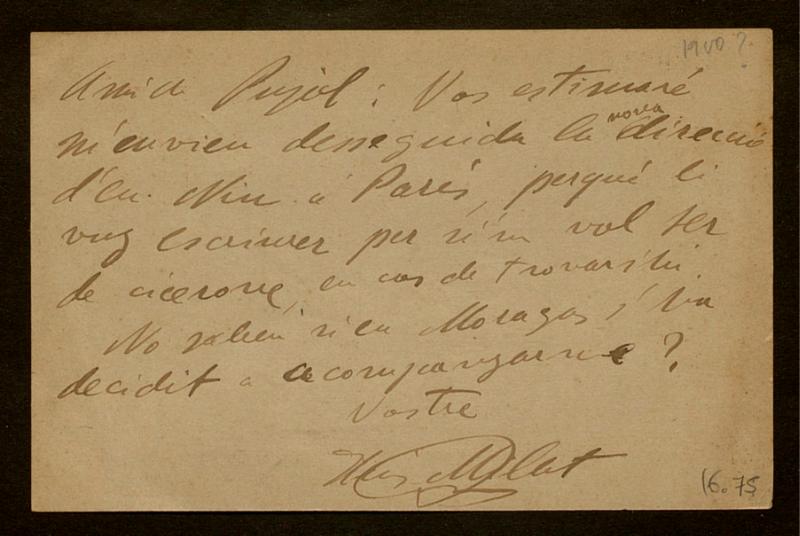 1900?
Amich Pujol: Vos estimaré
m'envieu desseguida la nova direcció
d'en Nin á Parés, perqué li
vuy escriurer per si'm vol ser
de cicerone, en cas de trovarshi.
No sabeu si en Moragas s'ha
decidit a acompanyarme?
Vostre
Lluis Millet
16.75